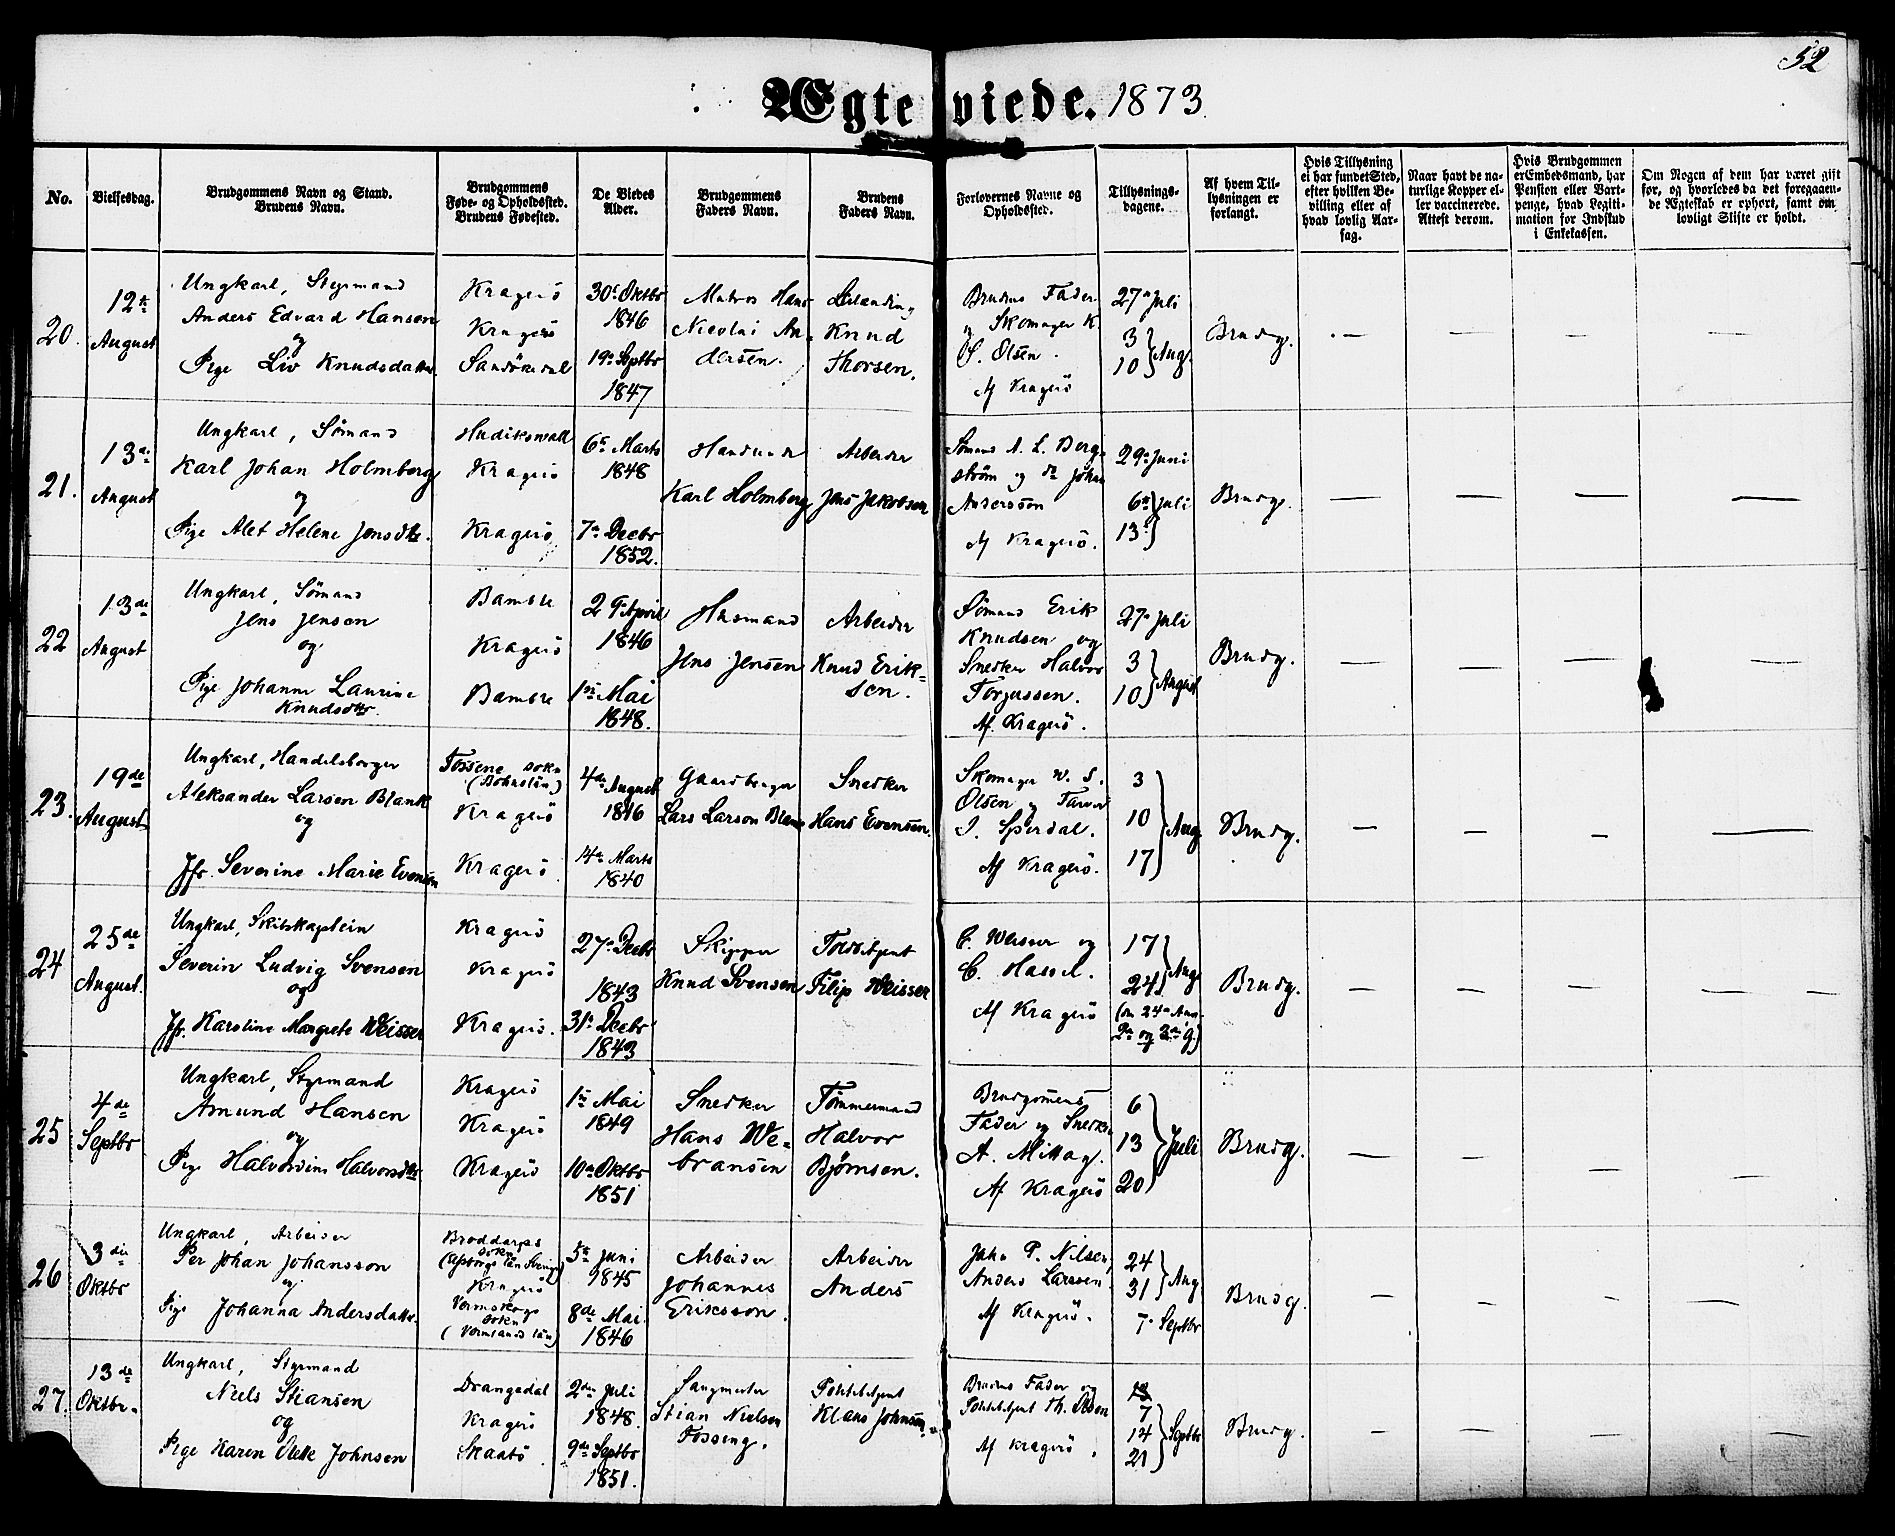 52
Ægteviede. 1873.
No.
Vielsesdag.
Brudgommens Navn og Stand.
Brudens Navn.
Brudgommens
Føde- og Opholdssted.
Brudens Fødested.
De Viedes
Alder.
Brudgommens
Faders Navn.
Brudens
Faders Navn.
Forlovernes Navne og
Opholdssted.
Tillysnings-
dagene.
Af hvem Til-
lysningen er
forlangt.
Hvis Tillysning
ei har fundet Sted,
efter hvilken Be-
villing eller af
hvad lovlig Aar-
sag.
Naar havt de na-
turlige Kopper el-
ler vaccinerede.
Attest derom.
Hvis Brudgommen
er Embedsmand, har
Pension eller Vart-
penge, hvad Legiti-
mation for Indskud
i Enkekassen.
Om Nogen af dem har været gift
før, og hvorledes da det foregaaen-
de Ægteskab er ophørt, samt om
lovligt Skifte er holdt.
20.
12te
August
Ungkarl, Styrmand
Anders Edvard Hansen
og
Pige Liv Knudsdatter
Kragerö
Kragerö
Sandökedal
30te Oktbr
1846
19de Septbr
1847
Matros Hans
Nicolai An-
dersen.
Knud
Thorsen.
Brudens Fader
og Skomager K.
S. Olsen.
Af Kragerö
27de Juli
3
10 } Aug.
Brudg.
21.
13de
August
Ungkarl, Sømand
Karl Johan Holmberg
og
Pige Alet Helene Jensdtr.
Hudikswall
Kragerö
Kragerö
6te Marts
1848
7de Decbr
1852.
Karl Holmberg
Arbeider
Jens Jakobsen
Sømand A. L. Berg-
ström og do Johan
Andersson
Af Kragerö.
29de Juni
6te
13de } Juli
Brudg.
22
13de
August
Ungkarl, Sømand
Jens Jensen
og
Pige Johanne Laurine
Knudsdtr.
Bamble
Kragerö
Bamble
29de April
1846
1ste Mai
1848.
Husmand
Jens Jensen
Arbeider
Knud Erik-
sen.
Sømand Erik
Knudsen og
Snedker Halvor
Torjussen.
Af Kragerö.
27de Juli
3
10 } August
Brudg.
23.
19de
August
Ungkarl, Handelsborger
Aleksander Larsen Blank
og
Jfr. Severine Marie Evensen
Tossene sokn
(Bohuslän)
Kragerö
Kragerö
4de August
1846
14de Marts
1840
Gaardbruger
Lars Larson Blank
Snedker
Hans Evensen.
Skomager W. S.
Olsen og Farver
J. Sperdal.
Af Kragerö.
3
10
17 } Aug
Brudg.
24
25de
August.
Ungkarl, Skibskaptein
Severin Ludvig Svensen
og
Jfr. Karoline Margrete Weisser
Kragerö
Kragerö
Kragerö.
27de Decbr
1843
31te Decbr
1843
Skipper
Knud Svensen
Toldbetjent
Filip Weisser
C. Weisser og
C. Hassel.
Af Kragerö
17
24 } Aug
(den 24de Aug.
2den og 3die g.)
Brudg.
25
4de
Septbr
Ungkarl, Styrmand
Amund Hansen
og
Pige Halvordine Halvorsdtr
Kragerö
Kragerö
Kragerö
1ste Mai
1849
10de Oktbr
1851
Snedker
Hans We-
bransen
Tømmermand
Halvor
Bjørnsen.
Brudgomens
Fader og Snedker
A. Mittag.
Af Kragerö
6
13
20 } Juli
Brudg.
26
3die
Oktbr
Ungkarl, Arbeider
Per Johan Johansson
og
Pige Johanna Andersdatter.
Broddarps
sokn
Kragerö
Värmskogs
sokn
(Vermlands län)
5te Juni
1845
8de Mai
1846
Arbeider
Johannes
Eriksson.
Arbeider
Anders
John P. Nilsen,
Anders Larssen.
Af Kragerö.
24
31 } Aug
7de Septbr
Brudg.
27.
13de
Oktbr.
Ungkarl, Styrmand
Niels Stiansen
og
Pige Karen Olette Johnsen
Drangedal
Kragerö
Skaatö
2den Juli
1848.
9de Septbr
1851.
Sangmester
Stian Nielsen
Tosseng.
Politibetjent
Klaus Johnsen.
Brudens Fader og
Politibetjent Th. Olsen
Af Kragerö.
7
14
21 } Septbr
Brudg.